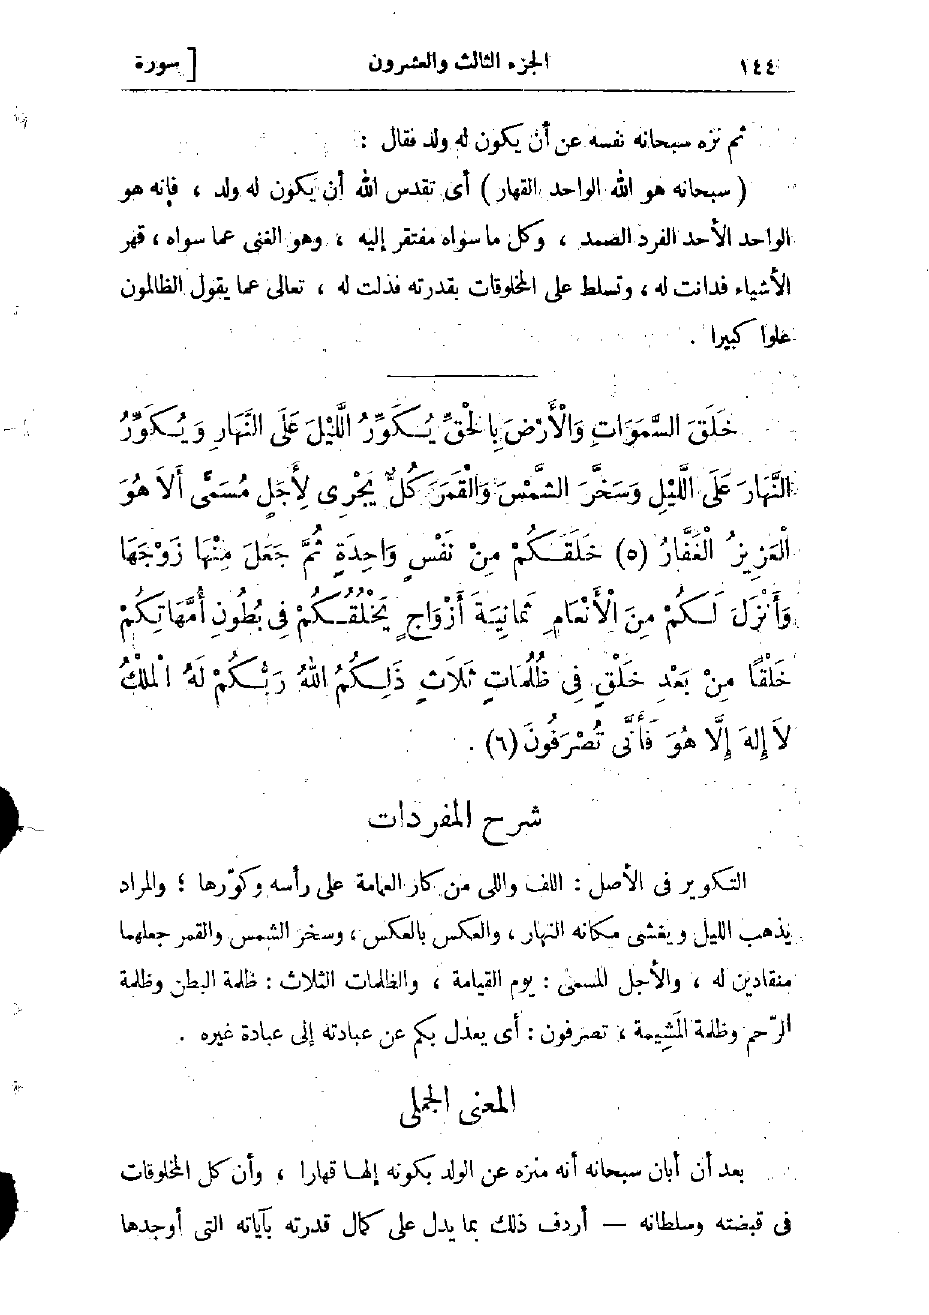 ١٤٤ الجزء الثالث والعشرون [ سورة
ثم نزه سبحانه نفسه عن أن يكون له ولد فقال :
( سبحانه هو الله الواحد القهار ) أى تقدس الله أن يكون له ولد ، فإنه هو
الواحد الأحد الفرد الصمد ، وكل ما سواه مفتقر إليه ، وهو الغنى عما سواه ، قهر
الأشياء فدانت له ، وتسلط على المخلوقات بقدرته فذلت له ، تعالى عما يقول الظالمون
علوا كبيرا .
خَلَقَ السَّمَوَاتِ وَالْأَرْضَ بِالْحَقِّ يُكَوِّرُ اللَّيْلَ عَلَى النَّهَارِ وَيُكَوِّرُ
النَّهَارَ عَلَى اللَّيْلِ وَسَخَّرَ الشَّمْسَ وَالْقَمَرَ كُلٌّ يَجْرِى لِأَجَلٍ مُسَمًّى أَلَا هُوَ
الْعَزِيزُ الْغَفَّارُ (٥) خَلَقَكُمْ مِنْ نَفْسٍ وَاحِدَةٍ ثُمَّ جَعَلَ مِنْهَا زَوْجَهَا
وَأَنْزَلَ لَكُمْ مِنَ الْأَنْعَامِ ثَمَانِيَةَ أَزْوَاجٍ يَخْلُقُكُمْ فِى بُطُونِ أُمَّهَاتِكُمْ
خَلْقًا مِنْ بَعْدِ خَلْقٍ فِى ظُلُمَاتٍ ثَلَاثٍ ذَلِكُمُ اللهُ رَبُّكُمْ لَهُ الْمُلْكُ
لَا إِلهَ إِلَّا هُوَ فَأَنَّى تُصْرَفُونَ (٦) .
شرح المفردات
التكوير فى الأصل : اللف واللى من كار العمامة على رأسه وكوّرها ؛ والمراد
يذهب الليل ويغشى مكانه النهار ، والعكس بالعكس ، وسخر الشمس والقمر جعلهما
منقادين له ، والأجل المسمى : يوم القيامة ، والظلمات الثلاث : ظلمة البطن وظلمة
الرّحم وظلمة المَشِيمة ، تصرفون : أى يعدل بكم عن عبادته إلى عبادة غيره .
المعنى الجملى
بعد أن أبان سبحانه أنه منزه عن الولد بكونه إلها قهارا ، وأن كل المخلوقات
فى قبضته وسلطانه — أردف ذلك بما يدل على كمال قدرته بآياته التى أوجدها